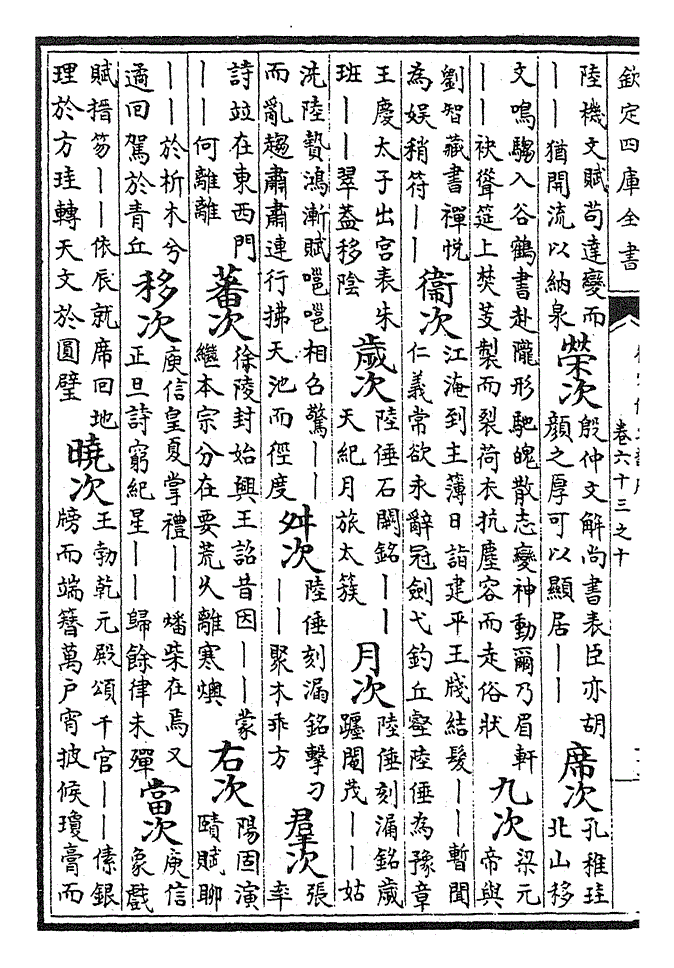 欽定四庫全書
卷六十三之十
陸機文賦苟達變而｜｜猶開流以納泉 榮次 殷仲文解尚書表臣亦胡顔之厚可以顯居｜｜ 席次 孔稚珪北山移
文鳴騶入谷鶴書赴隴形馳魄散志變神動爾乃眉軒｜｜袂聳筵上焚芰製而裂荷衣抗塵容而走俗狀 九次 梁元帝與
劉智藏書禪悅為娯稍符｜｜ 衞次 江淹到主簿日詣建平王牋結髮｜｜暫聞仁義常欲永辭冠劍弋釣丘壑陸倕為豫章
王慶太子出宫表朱班｜｜翠葢移陰 歲次 陸倕石闕銘｜｜天紀月旅太簇 月次 陸倕刻漏銘歲躔閹茂｜｜姑
洗陸贄鴻漸賦嗈嗈相召驚｜｜而亂趨肅肅連行拂天池而徑度 舛次 陸倕刻漏銘擊刁｜｜聚木乖方 羣次 張率
詩竝在東西門｜｜何離離 蕃次 徐陵封始興王詔昔因｜｜蒙繼本宗分在要荒久離寒燠 右次 陽固演賾賦聊
｜｜於析木兮遹回駕於青丘 移次 庾信皇夏掌禮｜｜燔柴在焉又正旦詩窮紀星｜｜歸餘律未殫 當次 庾信象戲
賦搢笏｜｜依辰就席回地理於方珪轉天文於圓璧 曉次 王勃乾元殿頌千官｜｜傃銀牓而端簪萬户宵披候瓊膏而